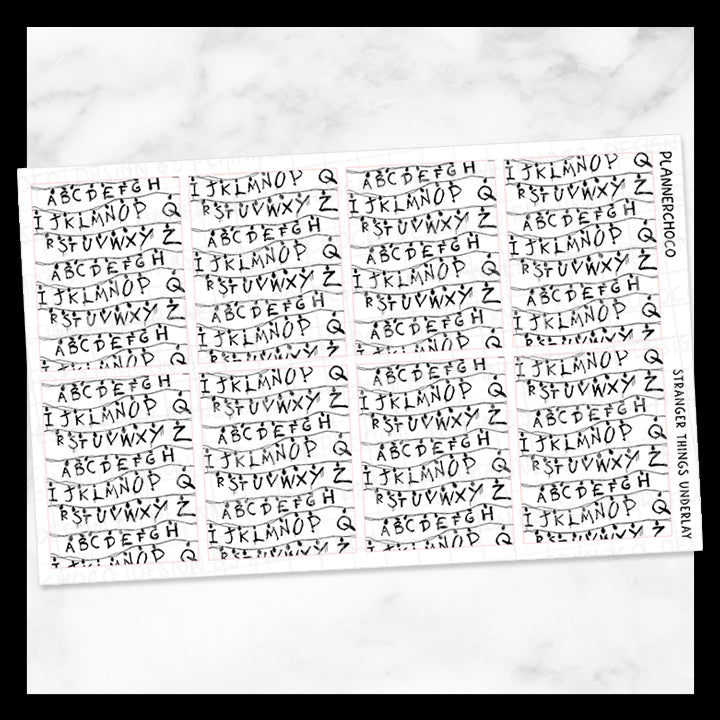 ABCDEFGH
IJKLMNOP Q
RSTUVWXY Z
ABCDEFGH
IJKLMNOP Q
RSTUVWXY Z
ABCDEFGH
IJKLMNOP Q
IJKLMNOP Q
RSTUVWXY Z
ABCDEFGH
IJKLMNOP Q
RSTUVWXY Z
ABCDEFGH
IJKLMNOP Q
RSTUVWXY Z
ABCDEFGH
IJKLMNOP Q
RSTUVWXY Z
ABCDEFGH
IJKLMNOP Q
RSTUVWXY Z
ABCDEFGH
IJKLMNOP Q
IJKLMNOP Q
RSTUVWXY Z
ABCDEFGH
IJKLMNOP Q
RSTUVWXY Z
ABCDEFGH
IJKLMNOP Q
RSTUVWXY Z
ABCDEFGH
IJKLMNOP Q
RSTUVWXY Z
ABCDEFGH
IJKLMNOP Q
RSTUVWXY Z
ABCDEFGH
IJKLMNOP Q
IJKLMNOP Q
RSTUVWXY Z
ABCDEFGH
IJKLMNOP Q
RSTUVWXY Z
ABCDEFGH
IJKLMNOP Q
RSTUVWXY Z
ABCDEFGH
IJKLMNOP Q
RSTUVWXY Z
ABCDEFGH
IJKLMNOP Q
RSTUVWXY Z
ABCDEFGH
IJKLMNOP Q
IJKLMNOP Q
RSTUVWXY Z
ABCDEFGH
IJKLMNOP Q
RSTUVWXY Z
ABCDEFGH
IJKLMNOP Q
RSTUVWXY Z
PLANNERCHOCO
STRANGER THINGS UNDERLAY